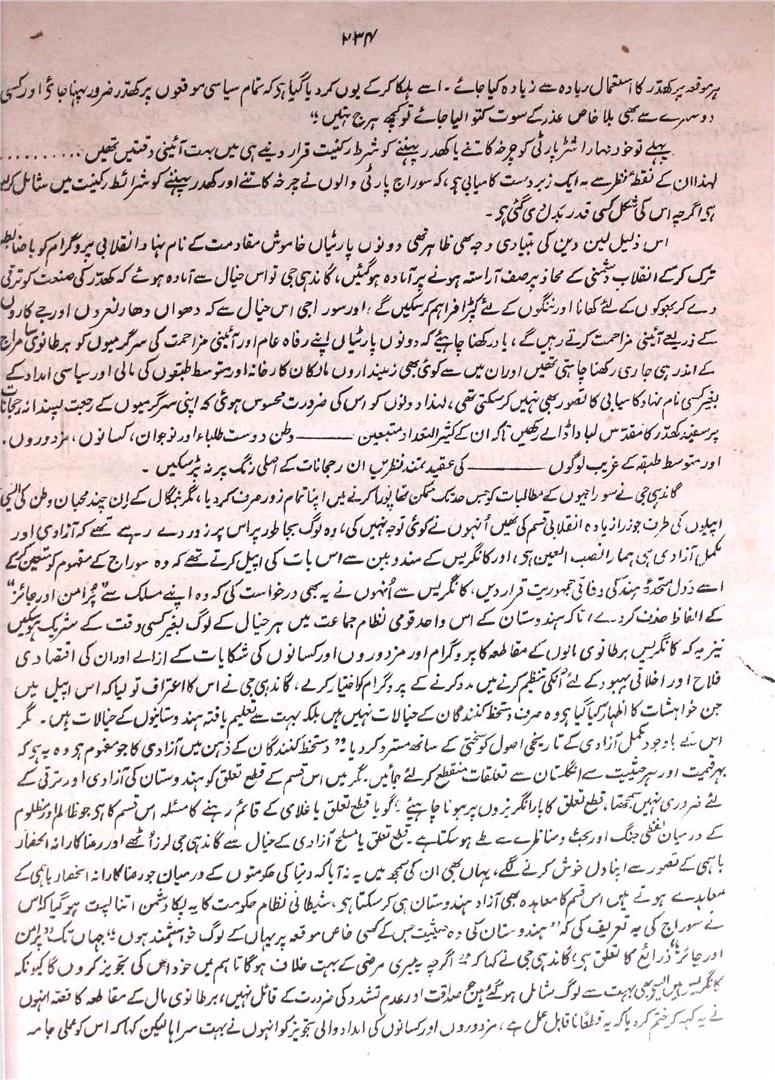 ۲۳۴
ہر موقعہ پر کھدر کا استعمال زیادہ سے زیادہ کیا جائے ۔ اسے ہلکا کر کے یوں کر دیا گیا ہی کہ تمام سیاسی موقعوں پر کھدّر ضرور پہنا جائے اور کسی
دوسرے سے بھی بلا خاص عذر کے سوت کتوا لیا جائے تو کچھ ہرج نہیں ؛؛
پہلے تو خود مہاراشٹر پارٹی کو چرخہ کاتنے یا کھدر پہننے کو شرط رکنیت قرار دینے ہی میں بہت آئینی دقتیں تھیں ..........
لہذا ان کے نقطۂ نظر سے یہ ایک زبردست کامیابی ہی، کہ سوراج پارٹی والوں نے چرخہ کاتنے اور کھدر پہننے کو شرائط رکنیت میں شامل کر لیا
ہی اگرچہ اس کی شکل کسی قدر بدل دی گئی ہی ۔
اس ذلیل لین دین کی بنیادی وجہ بھی ظاہر تھی دونوں پارٹیاں خاموش مقادمت کے نام نہاد انقلابی پروگرام کو باضابطہ
ترک کر کے انقلاب دشمنی کے محاذ پر صف آراستہ ہونے پر آمادہ ہو گئیں، گاندہی جی تو اس خیال سے آمادہ ہوئے کہ کھدّر کی صنعت کو ترقی
دے کر بھوکوں کے لئے کھانا اور ننگوں کے لئے کپڑا فراہم کر سکیں گے ؛ اور سوراجی اس خیال سے کہ دھواں دھار نعروں اور جے کاروں
کے ذریعے آئینی مزاحمت کرتے رہیں گے ، یاد رکھنا چاہئے کہ دونوں پارٹیاں اپنے رفاہ عام اور آئینی مزاحمت کی سرگرمیوں کو برطانوی سامراج
کے اندر ہی جاری رکھنا چاہتی تھیں اور ان میں سے کوئی بھی زمینداروں مالکان کارخانہ اور متوسط طبقوں کی مالی اور سیاسی امداد کے
بغیر کسی نام نہاد کامیابی کا تصور بھی نہیں کر سکتی تھی ، لہذا دونوں کو اس کی ضرورت محسوس ہوئی کہ اپنی سرگرمیوں کے رجعت پسندانہ رجحانات
پر سفید کھدّر کا مقدس لبادا ڈالے رکھیں تا کہ ان کے کثیر التعداد متبعین ــــــ وطن دوست طلباء اور نوجوان، کسانوں، مزدوروں،
اور متوسط طبقہ کے غریب لوگوں ــــــ کی عقیدتمند نظریں ان رجحانات کے اصلی رنگ پر نہ پڑ سکیں ۔
گاندہی جی نے سوراجیوں کے مطالبات کو جس حد تک ممکن تھا پورا کرنے میں اپنا تمام زور صرف کر دیا، مگر بنگال کے ان چند محبان وطن کی ایسی
اپیلوں کی طرف جو ذرا زیادہ انقلابی قسم کی تھیں اُنہوں نے کوئی توجہ نہیں کی، وہ لوگ بجا طور پر اس پر زور دے رہے تھے کہ آزادی اور
مکمل آزادی ہی ہمارا نصب العین ہی ، اور کانگریس کے مندوبین سے اس بات کی اپیل کرتے تھے کہ وہ سوراج کے مفہوم کو متعین کر کے
اسے دَول متحدۂ ہند کی وفاقی جمہوریت قرار دیں، کانگریس سے اُنہوں نے یہ بھی درخواست کی کہ وہ اپنے مسلک سے ”پُرامن اور جائز“
کے الفاظ حذف کر دے، تا کہ ہندوستان کے اس واحد قومی نظام جماعت میں ہر خیال کے لوگ بغیر کسی وقت کے شریک ہو سکیں
نیز یہ کہ کانگریس برطانوی مالوں کے مقاطعہ کا پروگرام اور مزدوروں اور کسانوں کی شکایات کے ازالے اور ان کی اقتصادی
فلاح اور اخلاقی بہبود کے لئے اُنکی تنظیم کرنے میں مدد کرنے کے پروگرام کو اختیار کر لے، گاندہی جی نے اس کا اعتراف تو لیا کہ اس اپیل میں
جن خواہشات کا اظہار کیا گیا ہی وہ صرف دستخط کنندگان کے خیالات نہیں ہیں بلکہ بہت سے تعلیم یافتہ ہندوستانیوں کے خیالات ہیں ۔ مگر
اس کے باوجود مکمل آزادی کے تاریخی اصول کو سختی کے ساتھ مسترد کر دیا ”دستخط کنندگان کے ذہن میں آزادی کا جو مفہوم ہی وہ یہ ہی کہ
بہر قیمت اور ہر حیثیت سے انگلستان سے تعلقات منقطع کر لئے جائیں۔ مگر میں اس قسم کے قطع تعلق کو ہندوستان کی آزادی اور ترقی کے
لئے ضروری نہیں سمجھتا، قطع تعلق کا بار انگریزوں پر ہونا چاہیئے ؛؛ گویا قطع تعلق یا غلامی کے قائم رہنے کا مسئلہ اس قسم کا ہی جو ظالم اور مظلوم
کے درمیان لفظی جنگ اور بحث و مناظرے سے طے ہو سکتا ہے ۔ قطع تعلق یا مسلح آزادی کے خیال سے گاندہی جی لرز اُٹھے اور رضاکارانہ انحصار
باہمی کے تصور سے اپنا دل خوش کرنے لگے، یہاں بھی ان کی سمجھ میں یہ نہ آیا کہ دنیا کی حکومتوں کے درمیان جو رضاکارانہ انحصار باہمی کے
معاہدے ہوتے ہیں اس قسم کا معاہدہ بھی آزاد ہندوستان ہی کر سکتا ہی، شیطانی نظام حکومت کا یہ پکا دشمن اتنا پست ہو گیا کہ اس
نے سوراج کی یہ تعریف کی کہ ”ہندوستان کی وہ حیثیت جس کے کسی خاص موقعہ پر یہاں کے لوگ خواہشمند ہوں ؛؛ جہاں تک ”پر امن
اور جائز“ ذرائع کا تعلق ہی؛ گاندہی جی نے کہا کہ ”اگرچہ یہ میری مرضی کے بہت خلاف ہو گا تاہم میں خود اس کی تجویز کروں گا کیونکہ
کانگریس میں ایسے بھی بہت سے لوگ شامل ہو گئے ہیں جو صداقت اور عدم تشدد کی ضرورت کے قائل نہیں، برطانوی مال کے مقاطعہ کا قصّہ انہوں
نے یہ کہہ کر ختم کر دیا کہ یہ قطعاً ناقابل عمل ہے ، مزدوروں اور کسانوں کی امداد والی تجویز کو انہوں نے بہت سراہا لیکن کہا کہ اس کو عملی جامہ